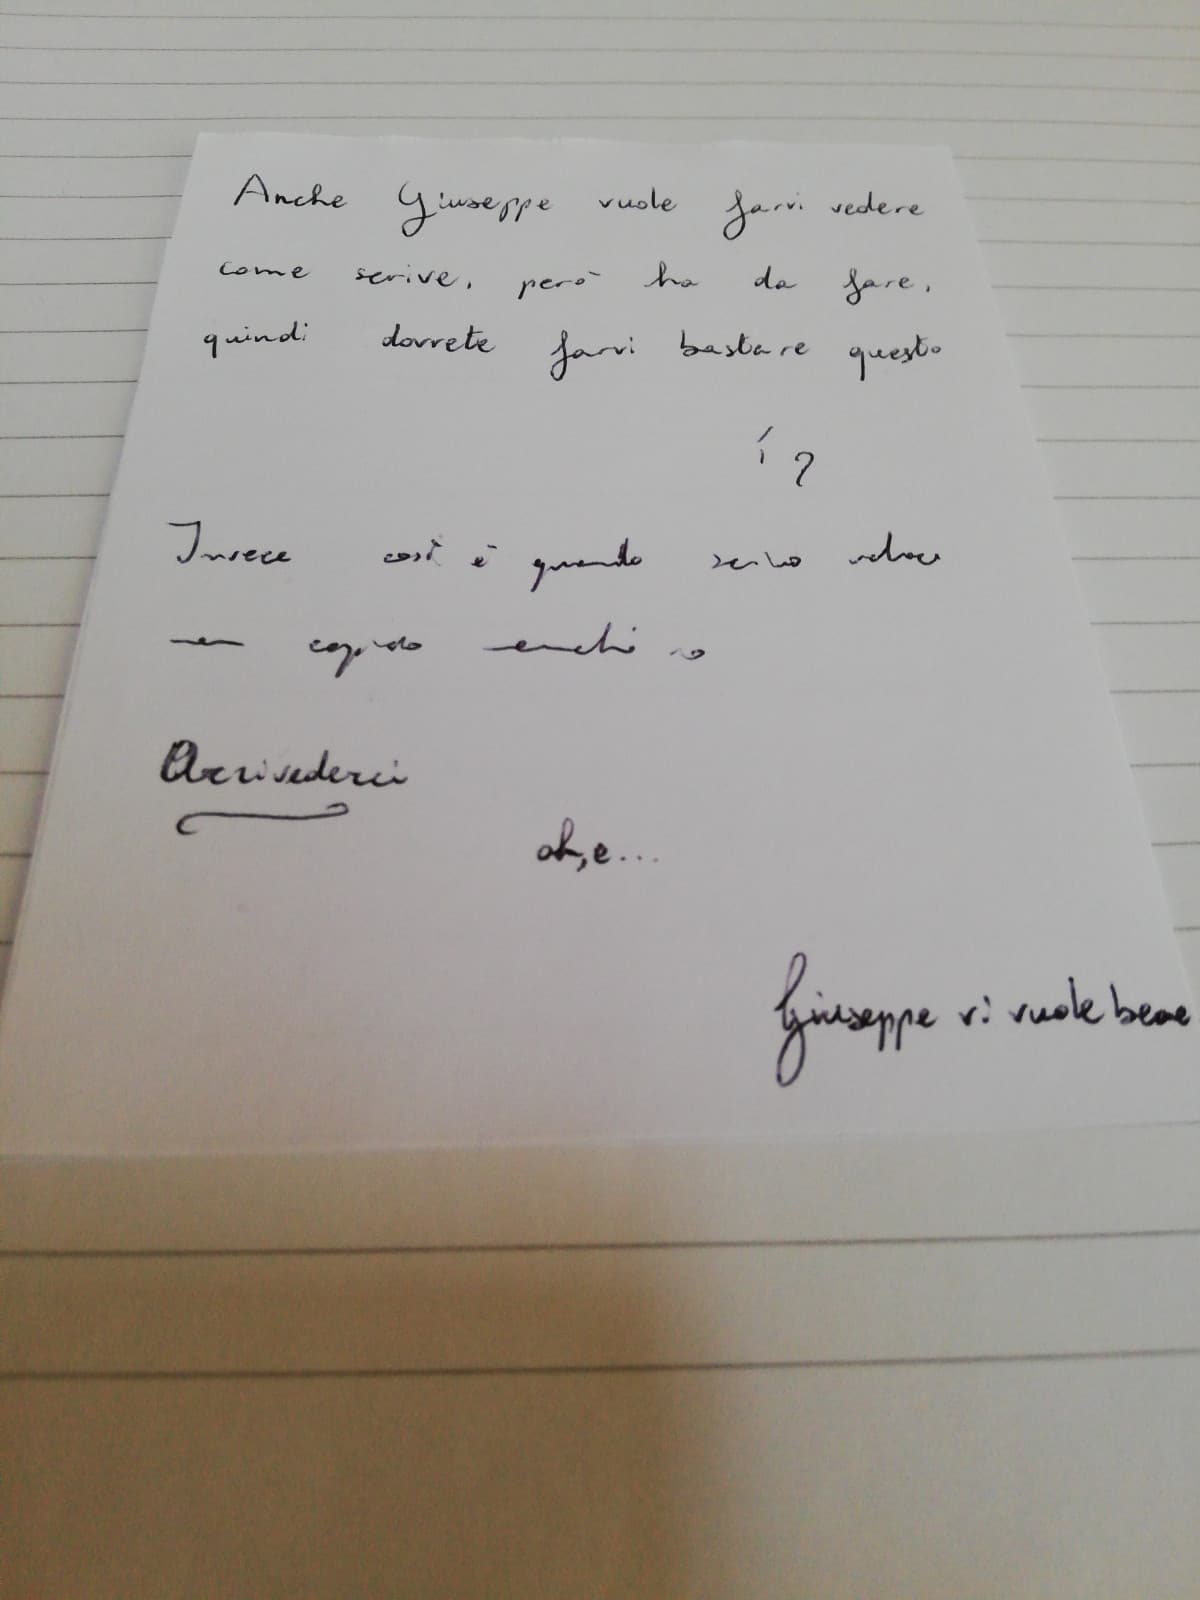 Anche Giuseppe vuole farvi vedere
come scrive, però ha da fare,
quindi dovrete farvi bastare questo
í ?
Invece così è quando scrivo veloce
capisco
Arrivederci
oh, e...
Giuseppe vi vuole bene